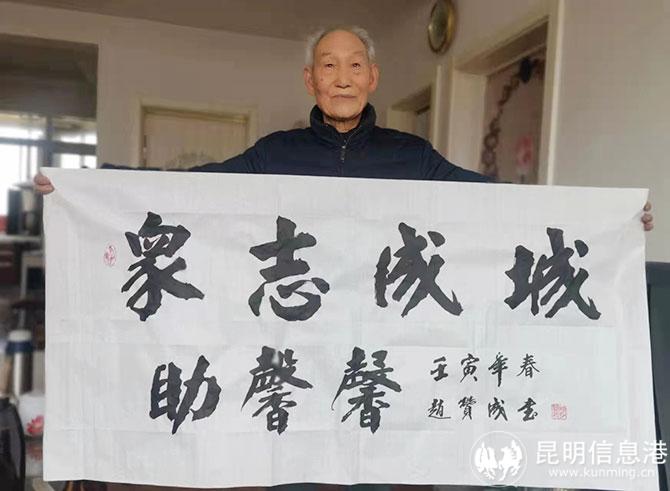 眾志成城
助馨馨
壬寅年春
趙贊成書
昆明信息港
www.kunming.cn